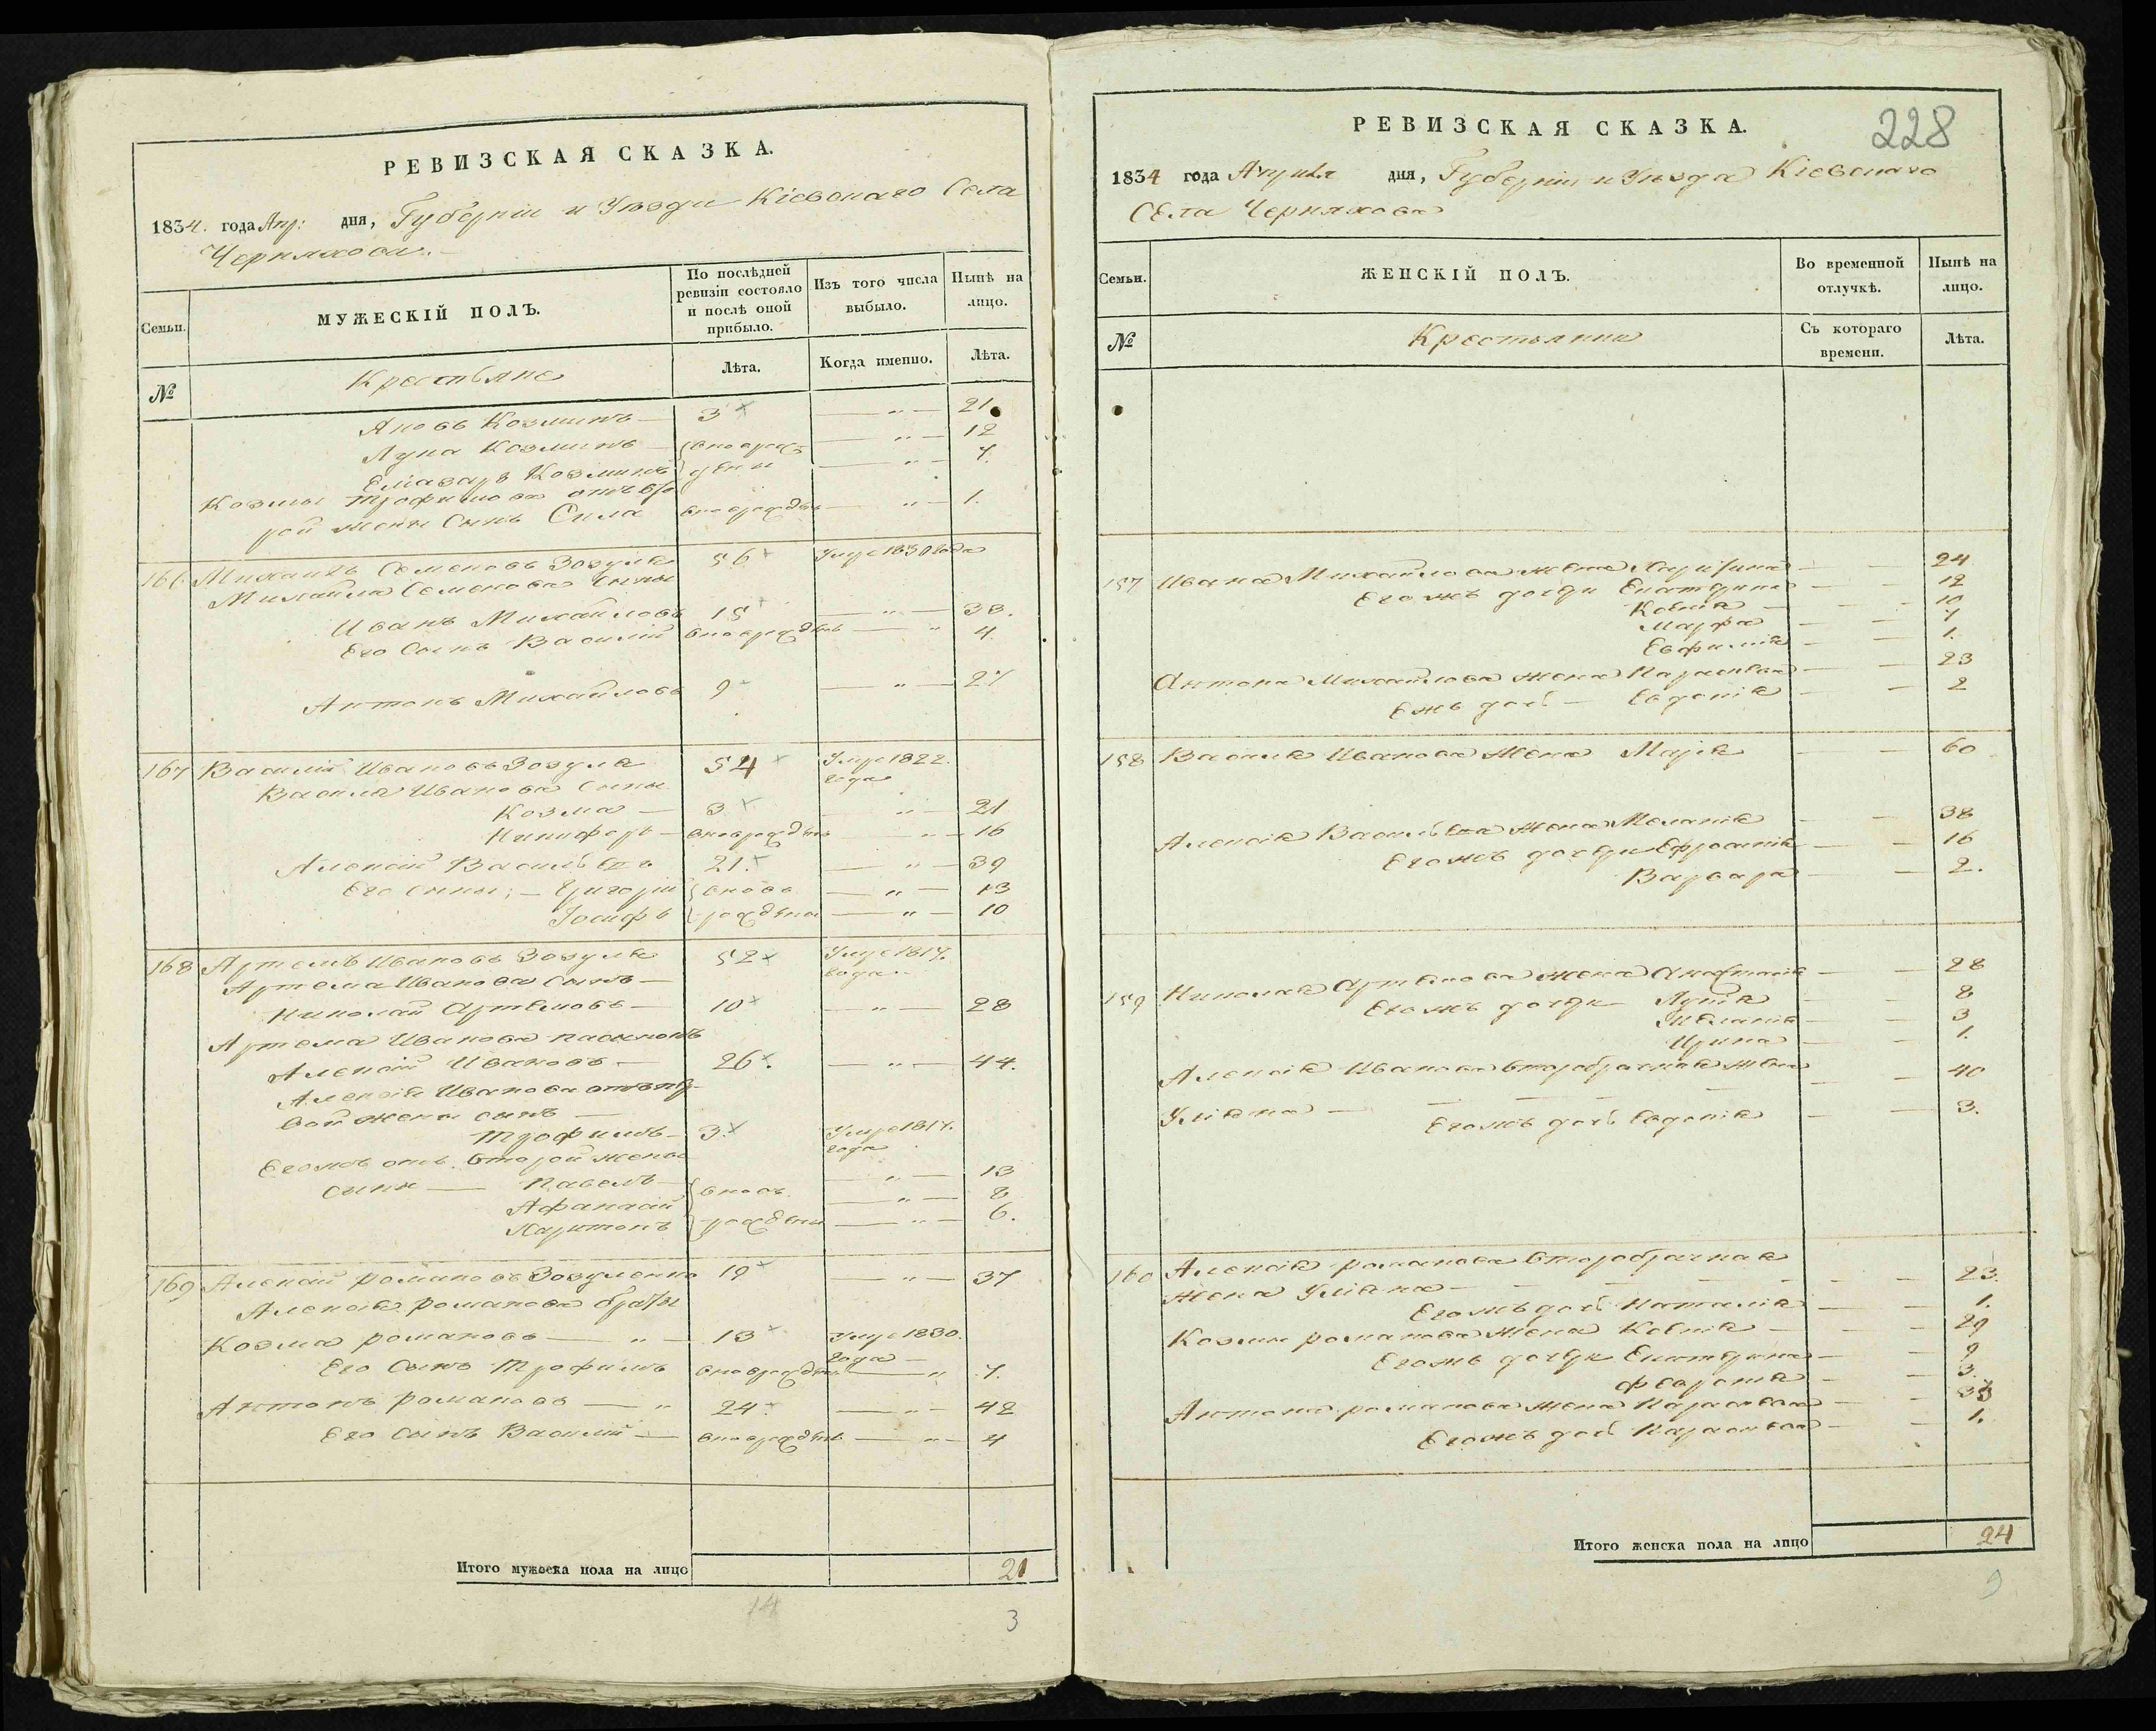 РЕВИЗСКАЯ СКАЗКА.
1834. года Апр: дня, Губерніи и Уезда Кіевскаго Села
Черняхова.
Семьи.
МУЖЕСКІЙ ПОЛЪ.
По послѣдней
ревизіи состояло
и послѣ оной
прибыло.
Изъ того числа
выбыло.
Нынѣ на
лицо.
№
Крестьяне
Лѣта.
Когда именно.
Лѣта.
Яковъ Козминъ — 3 — " — 21.
Лука Козминъ — вноврож — " — 12
Еліазаръ Козминъ дены — " — 7.
Козмы Трофимова отъ вто
рой жены Сынъ Сила вноврожденъ — " — 1.
166 Михаилъ Семеновъ Зозуля 56 Умре 1830 года
Михайла Семенова Сыны
Иванъ Михайловъ 15 — " — 33.
Его Сынъ Василій вноврожденъ — " 4.
Антонъ Михайловъ 9 — " — 27
167 Василій Ивановъ Зозуля 54 Умре 1822.
года
Василя Иванова Сыны
Козма — 3 — " — 21
Никифоръ — вноврожденъ — " — 16
Алексій Васильевъ 21. — " — 39
Его Сыны; — Григорій вновь — " — 13
Іосифъ рождены — " — 10
168 Артемъ Ивановъ Зозуля 52 Умре 1817.
года.
Артема Иванова Сынъ —
Николай Артемовъ — 10 — " — 28
Артема Иванова пасынокъ
Алексій Ивановъ — 26. — " — 44.
Алексія Иванова отъ пер
вой жены сынъ —
Трофимъ — 3. Умре 1817.
года
Егожъ отъ второй жены
сыны — Павелъ — вновь — " — 13
Афанасій — " — 8
Харитонъ рождены — " — 6.
169 Алексій Романовъ Зозуленко 19 — " — 37
Алексія Романова братья
Козма Романовъ — " — 13 Умре 1830.
года —
Его Сынъ Трофимъ вноврожденъ — " 7.
Антонъ Романовъ — " 24. — " — 42
Его Сынъ Василій — вноврожденъ — " — 4
Итого мужеска пола на лицо 21
14
3
РЕВИЗСКАЯ СКАЗКА.
228
1834 года Апреля дня, Губерніи и Уезда Кіевскаго
Села Черняхова
Семьи.
ЖЕНСКІЙ ПОЛЪ.
Во временной
отлучкѣ.
Нынѣ на
лицо.
№
Крестьянки
Съ котораго
времени.
Лѣта.
157 Ивана Михайлова жена — — 24
Егожъ дочери Екатерина — — 12
Ксенія — — 10
Марфа — — 7
Евфимія — — 1.
Антона Михайлова жена Параскева — — 23
Ежъ дочь — Евдокія — — 2
158 Василя Иванова жена Марія — — 60
Алексія Васильева жена Меланія — — 38
Егожъ дочери Ефросинія — — 16
Варвара — — 2.
159 Николая Артемова жена Анастасія — — 28
Егожъ дочери — — 8
Меланія — — 3
Ирина — — 1.
Алексія Иванова второбрачная жена
Уліана — — — — 40
Егожъ дочь Евдокія — — 3.
160 Алексія Романова второбрачная
жена Уліана — — — — 23.
Егожъ дочь Наталія — — 1.
Козмы Романова жена Ксенія — — 29
Егожъ дочери Екатерина — — 9
— — 3.
Антона Романова жена Параскева — —
Егожъ дочь Параскева — — 1.
Итого женска пола на лицо 24
9